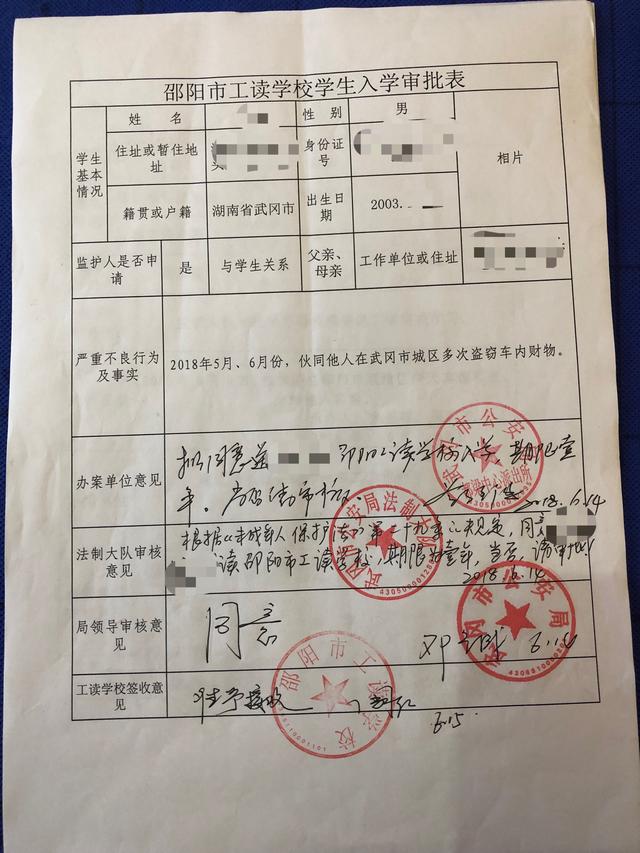 邵阳市工读学校学生入学审批表
学生基本情况
姓 名
性 别
男
相片
住址或暂住地址
身份证号
籍贯或户籍
湖南省武冈市
出生日期
2003.
监护人是否申请
是
与学生关系
父亲、母亲
工作单位或住址
严重不良行为及事实
2018年5月、6月份，伙同他人在武冈市城区多次盗窃车内财物。
办案单位意见
拟同意送 邵阳工读学校入学，期限壹
年。
2018.6.14
法制大队审核意见
根据《未成年人保护法》第二十九条之规定，同意
读邵阳市工读学校，期限为壹年，当否，请审批
2018.6.14
局领导审核意见
同意
6.14
工读学校签收意见
准予接收
6.15
武冈市公安局
4305810001
武冈市公安局法制大队
邵阳市工读学校